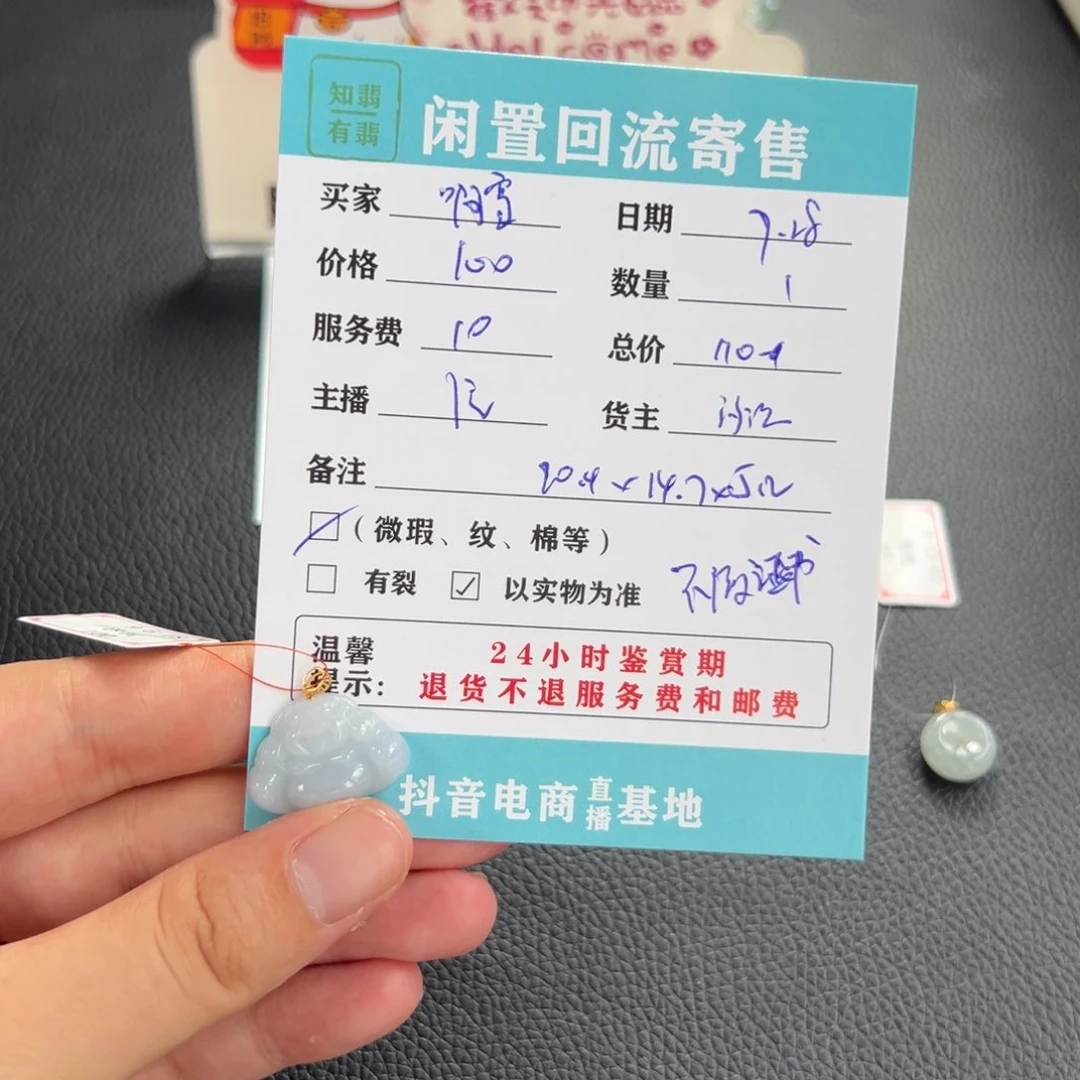 Welcome
知翡
有翡
闲置回流寄售
买家 日期 7.28
价格 100 数量 1
服务费 10 总价
主播 货主
备注 20.4 x 14.7x5.2
(微瑕、纹、棉等)
有裂 ✓ 以实物为准
温馨
提示:
24小时鉴赏期
退货不退服务费和邮费
抖音电商直播基地